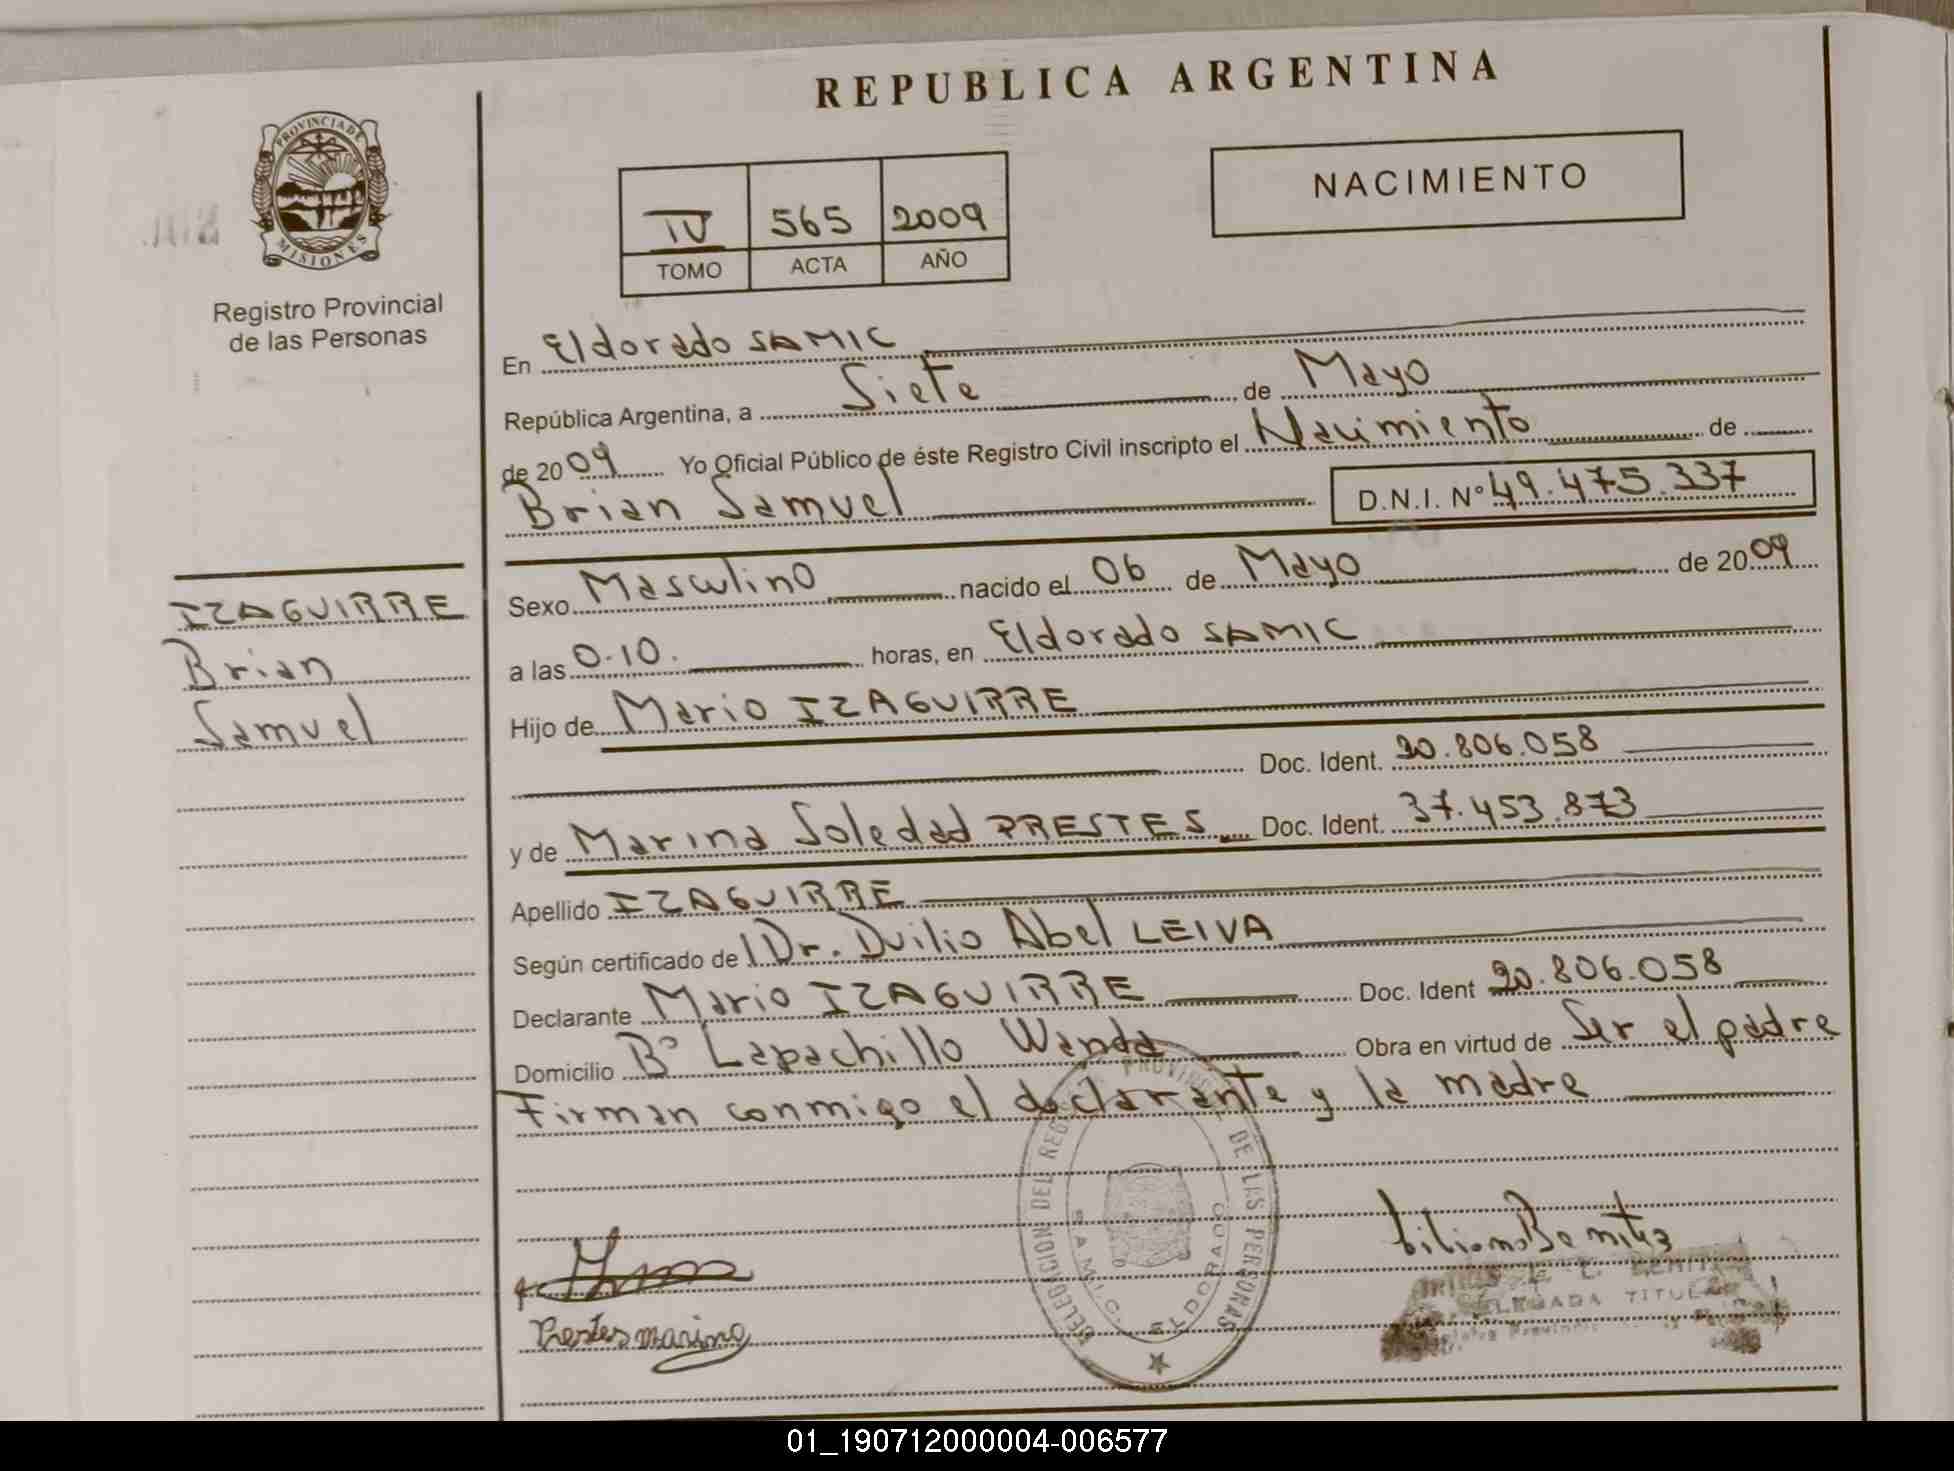 REPUBLICA ARGENTINA
PROVINCIA DE
MISIONES
Registro Provincial
de las Personas
IV 565 2009
TOMO ACTA AÑO
NACIMIENTO
En Eldorado SAMIC
República Argentina, a Siete de Mayo
de 2009 Yo Oficial Público de éste Registro Civil inscripto el Nacimiento de
Brian Samuel D.N.I. N° 49.475.337
IZAGUIRRE
Brian
Samuel
Sexo Masculino nacido el 06 de Mayo de 2009
a las 0.10. horas, en Eldorado SAMIC
Hijo de Mario IZAGUIRRE
Doc. Ident. 20.806.058
y de Marina Soledad PRESTES Doc. Ident. 37.453.873
Apellido IZAGUIRRE
Según certificado de Dr. Duilio Abel LEIVA
Declarante Mario IZAGUIRRE Doc. Ident 20.806.058
Domicilio B° Lapachillo Wanda Obra en virtud de Ser el padre
Firman conmigo el declarante y la madre
DELEGACION DEL REGISTRO PROVINCIAL DE LAS PERSONAS
S.A.M.I.C. ELDORADO
Prestes marina
DELEGADA TITULAR
01_190712000004-006577